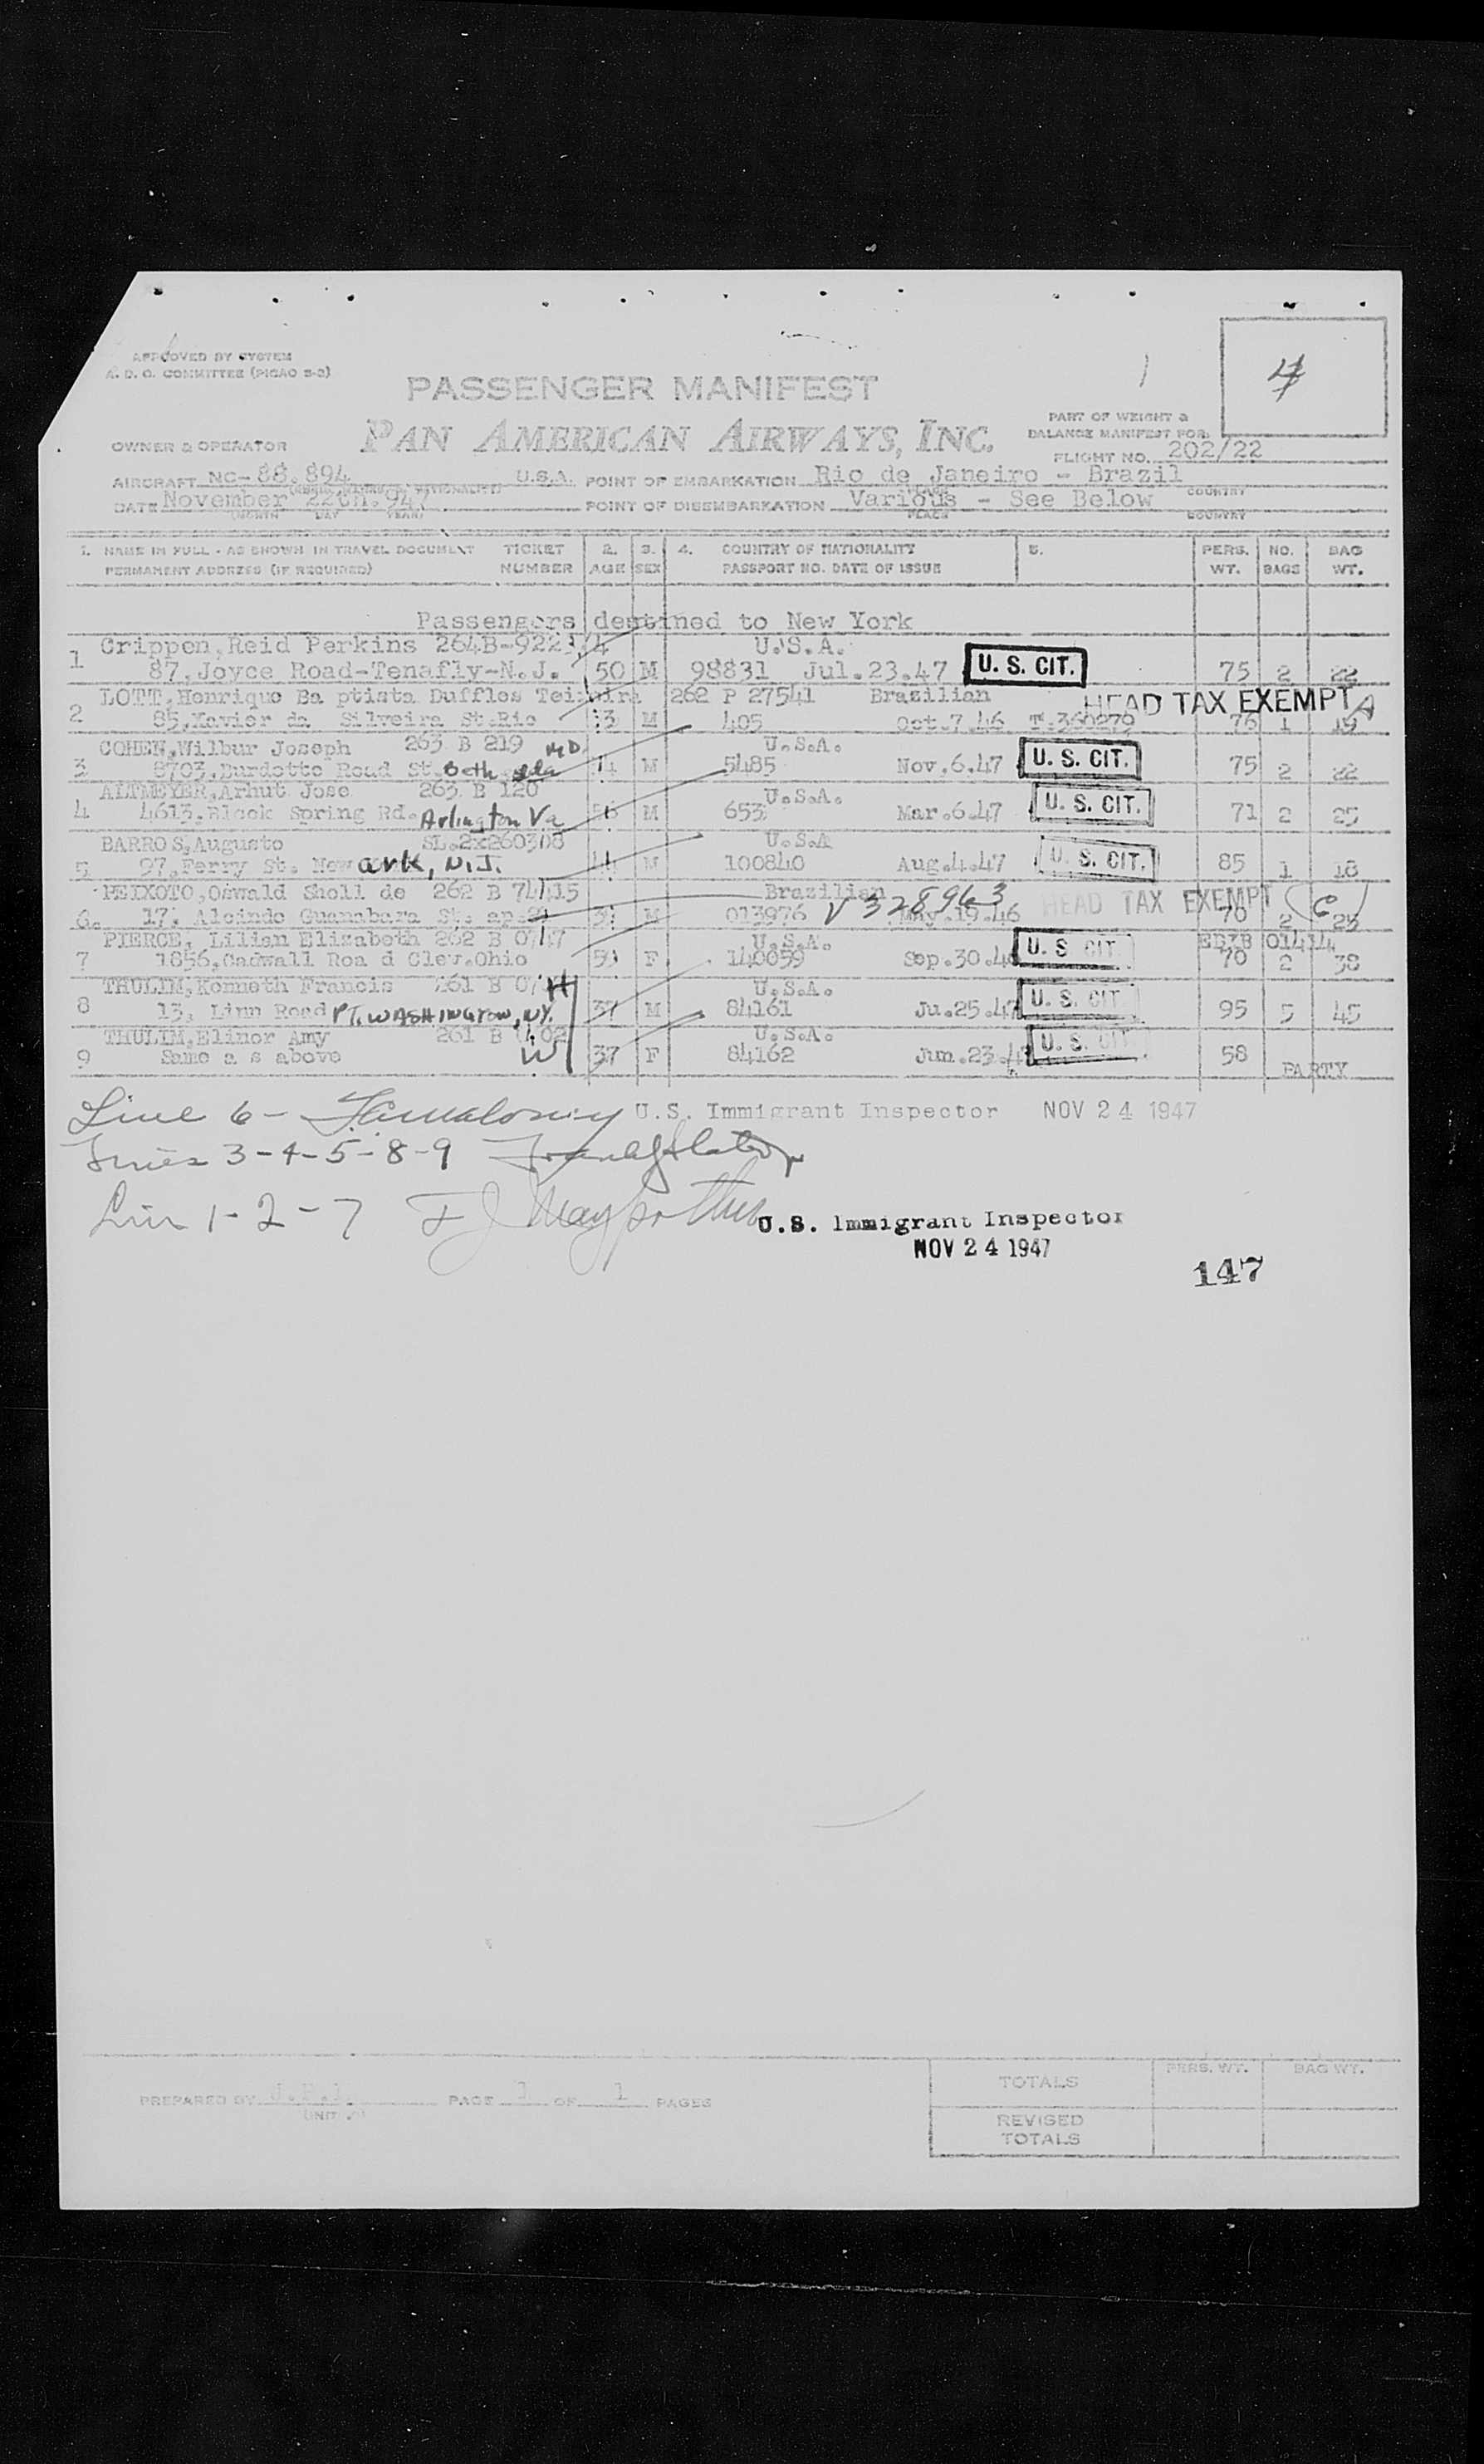 APPROVED BY SYSTEM
A. D. O. COMMITTEE (PICAO 2-2)
4
PASSENGER MANIFEST
PART OF WEIGHT &
BALANCE MANIFEST FOR
OWNER & OPERATOR PAN AMERICAN AIRWAYS, INC. FLIGHT NO. 202/22
AIRCRAFT NC-88.894 U.S.A. POINT OF EMBARKATION Rio de Janeiro - Brazil
COUNTRY
DATE November 22th.947 POINT OF DISEMBARKATION Various - See Below
(MONTH DAY YEAR) PLACE COUNTRY
1. NAME IN FULL - AS SHOWN IN TRAVEL DOCUMENT TICKET 2. 3. 4. COUNTRY OF NATIONALITY 5. PERS. NO. BAG
PERMANENT ADDRESS (IF REQUIRED) NUMBER AGE SEX PASSPORT NO. DATE OF ISSUE WT. BAGS WT.
Passengers destined to New York
Crippen,Reid Perkins 264B- U.S.A.
1 87,Joyce Road-Tenafly-N.J. 50 M 98831 Jul.23.47 U. S. CIT. 75 2 22
LOTT,Henrique Ba ptista Duffles Teixeira 262 P 27541 Brazilian HEAD TAX EXEMPT A
2 85,Xavier da Silveira St.Rio M 405 Oct.7.46 T.360279 76 1 19
COHEN,Wilbur Joseph 263 B 219 MD. U.S.A.
3 8703,Burdette Road St. Beth M 5485 Nov.6.47 U. S. CIT. 75 2 22
ALTMEYER,Arhut Jose 263 B 120 U.S.A.
4 4613.Rlock Spring Rd. Arlington Va M 653 Mar.6.47 U. S. CIT. 71 2 25
BARRO S,Augusto SL.2x260308 U.S.A
5 97,Ferry St. Newark, N.J. M 100840 Aug.4.47 U. S. CIT. 85 1 18
PEIXOTO,Oswald Sholl de 262 B Brazilian V 328963 HEAD TAX EXEMPT (C)
6. 17, Alcindo Guanabara St. M 013976 May.19.46 70 2 25
PIERCE, Lilian Elizabeth 262 B U.S.A. EBZB 01414
7 1856,Cadwall Roa d Clev.Ohio F 140059 Sep.30.46 U. S. CIT. 70 2 38
THULIM,Kenneth Francis 261 B H U.S.A.
8 13, Linn Road PT. WASHINGTON, NY. 37 M 84161 Ju.25.47 U. S. CIT. 95 5 45
THULIM,Elinor Amy 261 B W U.S.A.
9 Same a s above 37 F 84162 Jun.23.47 U. S. CIT. 58 PARTY
Line 6- U.S. Immigrant Inspector NOV 24 1947
Lines 3-4-5-8-9
Line 1-2-7
U.S. Immigrant Inspector
NOV 24 1947
147
PREPARED BY PAGE 1 OF 1 PAGES
TOTALS PERS. WT. BAG WT.
REVISED
TOTALS